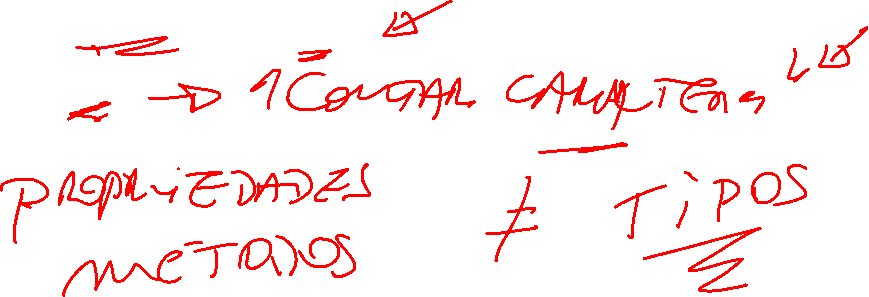 → 1 CONTAR CARACTERES
PROPRIEDADES ≠ TIPOS
METODOS